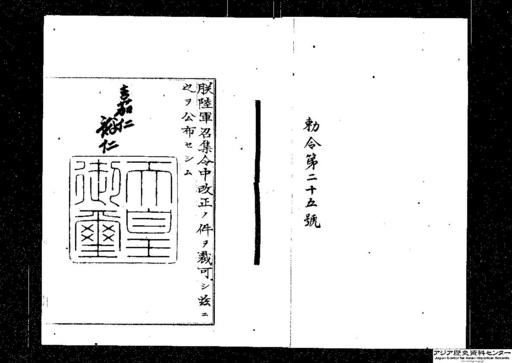 勅令第二十五號
朕陸軍召集令中改正ノ件ヲ裁可シ茲ニ
之ヲ公布セシム
嘉仁
裕仁
天皇
御璽
アジア歴史資料センター
Japan Center for Asian Historical Records